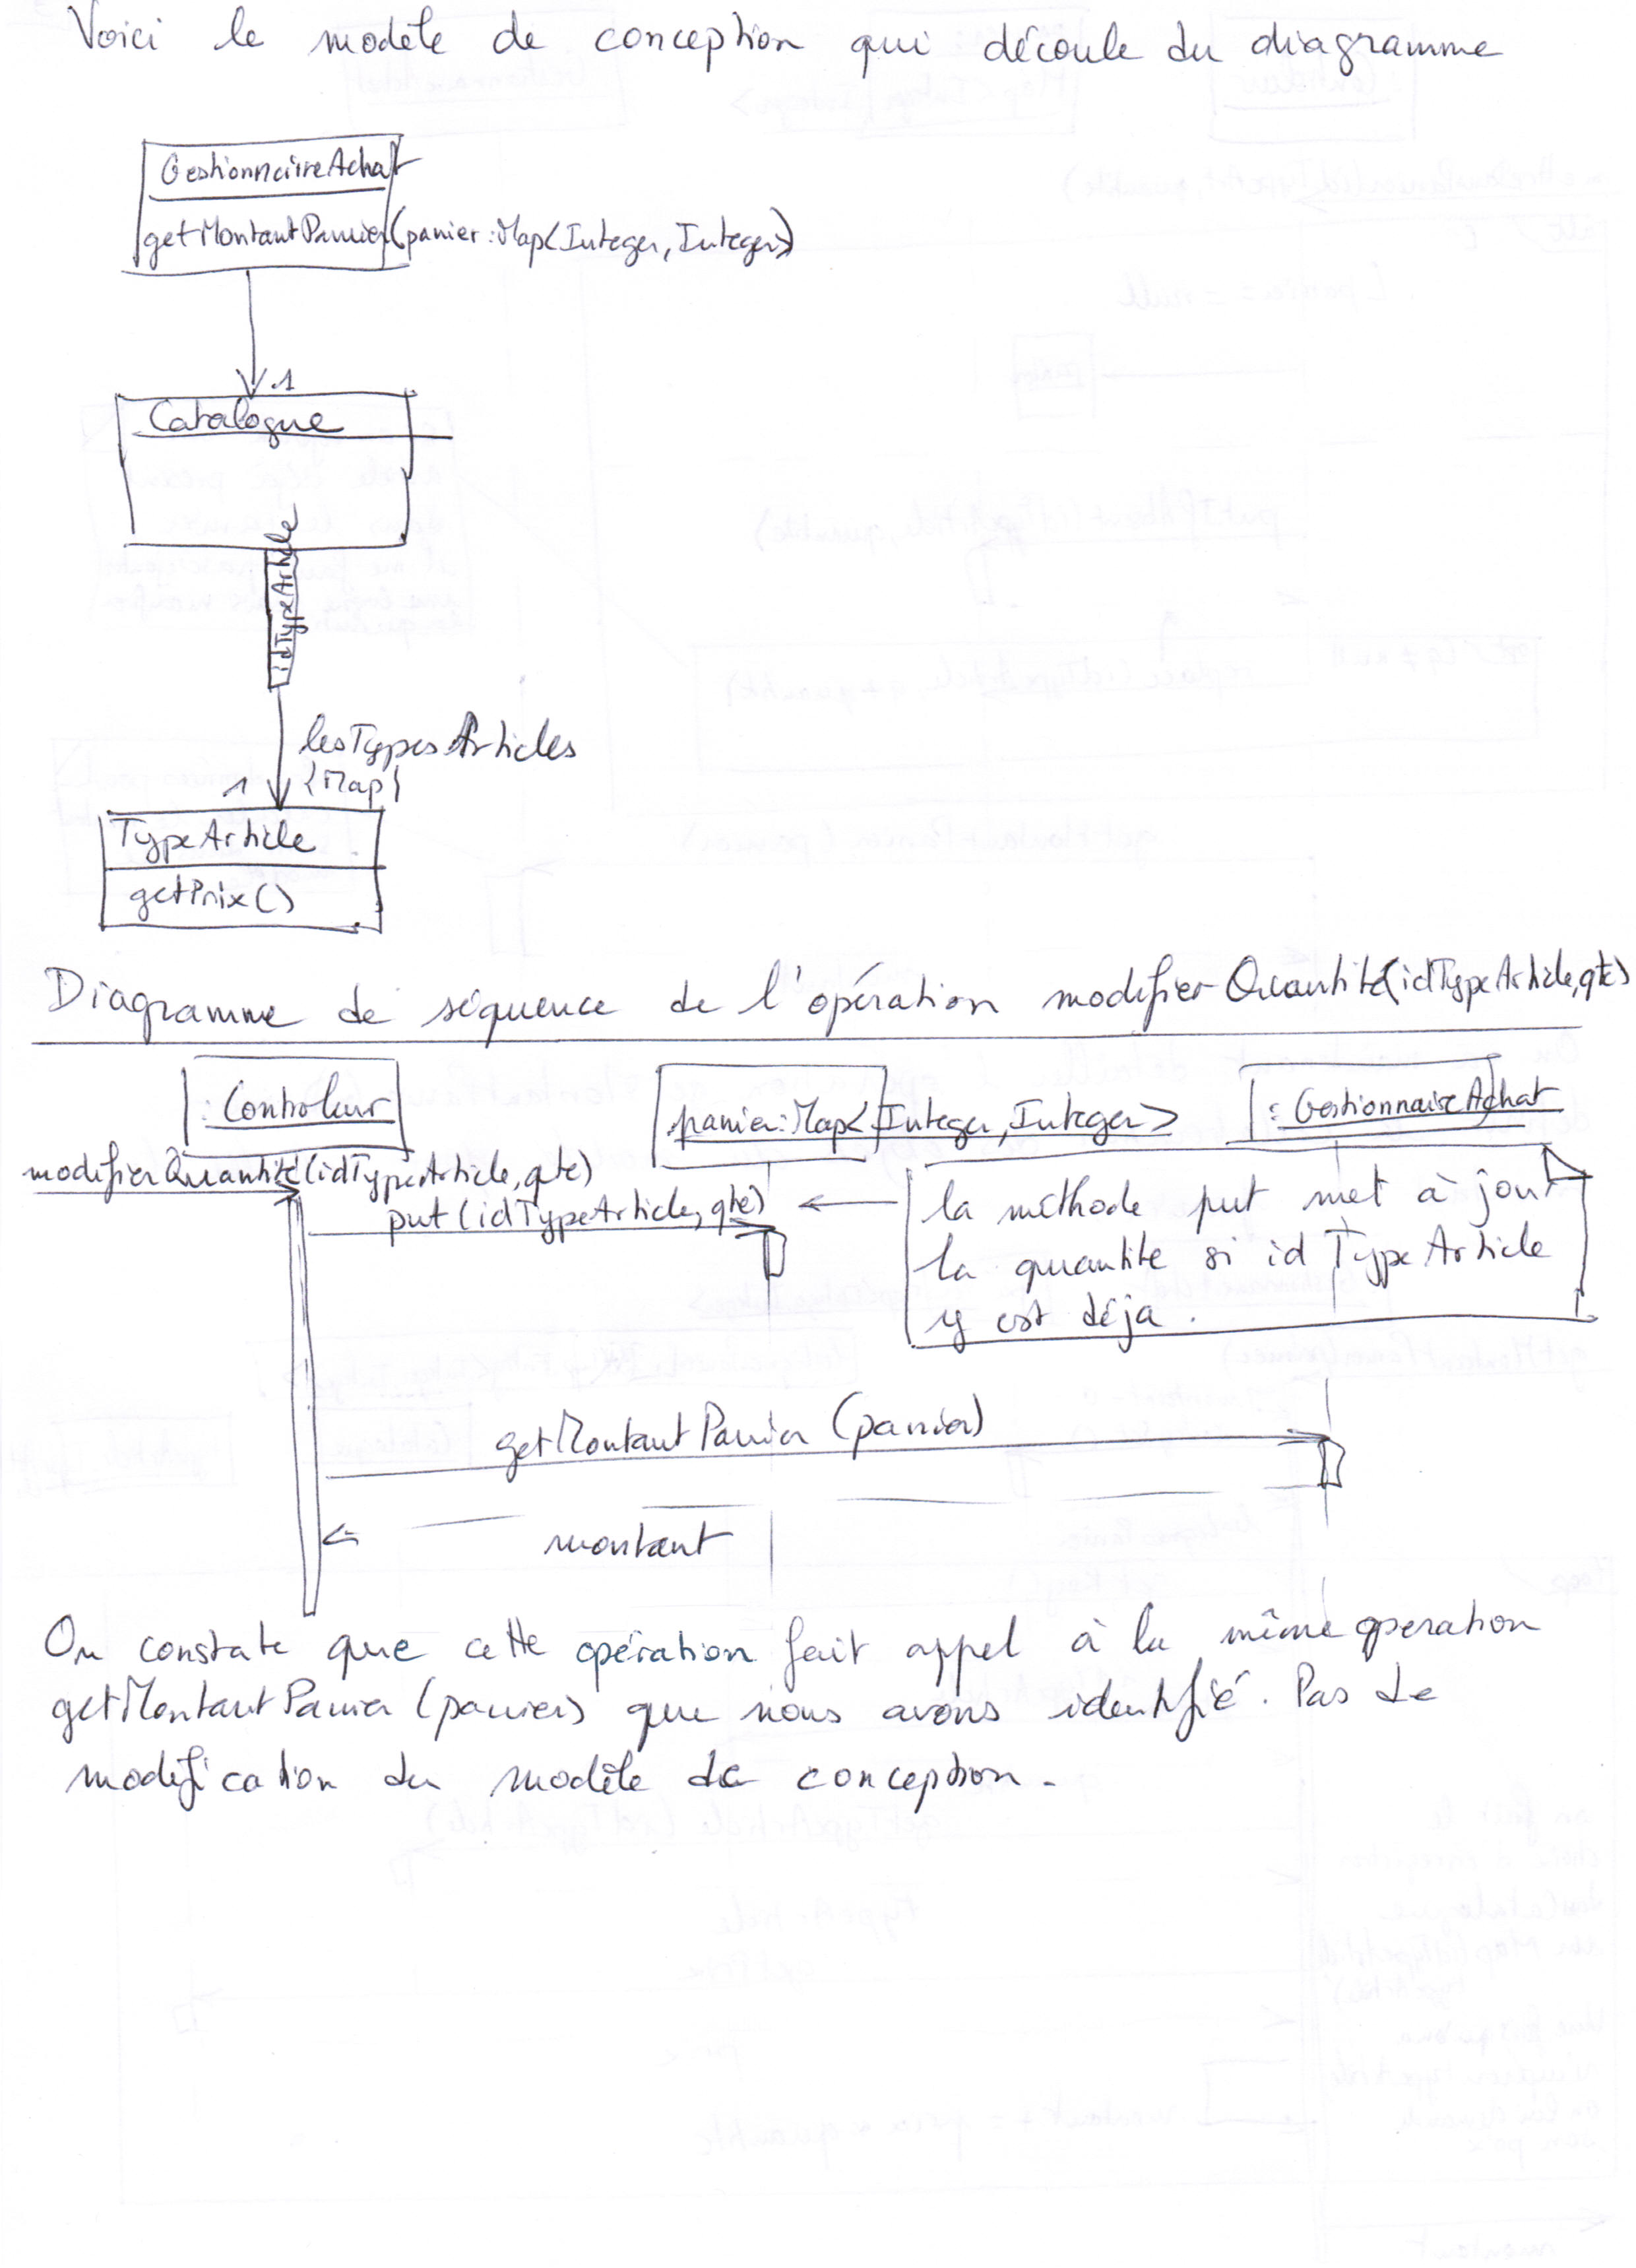 Voici le modèle de conception qui découle du diagramme
GestionnaireAchat
getMontantPanier(panier:Map<Integer, Integer>)
1
Catalogue
idTypeArticle
lesTypesArticles
1 {Map}
TypeArticle
getPrix()
Diagramme de séquence de l'opération modifierQuantité(idTypeArticle,qte)
: Controleur
panier:Map<Integer, Integer>
: GestionnaireAchat
modifierQuantité(idTypeArticle, qte)
put(idTypeArticle, qte)
la méthode put met à jour
la quantité si idTypeArticle
y est déja.
getMontantPanier (panier)
montant
On constate que cette opération fait appel à la même operation
getMontantPanier (panier) que nous avons identifié. Pas de
modification du modèle de conception.